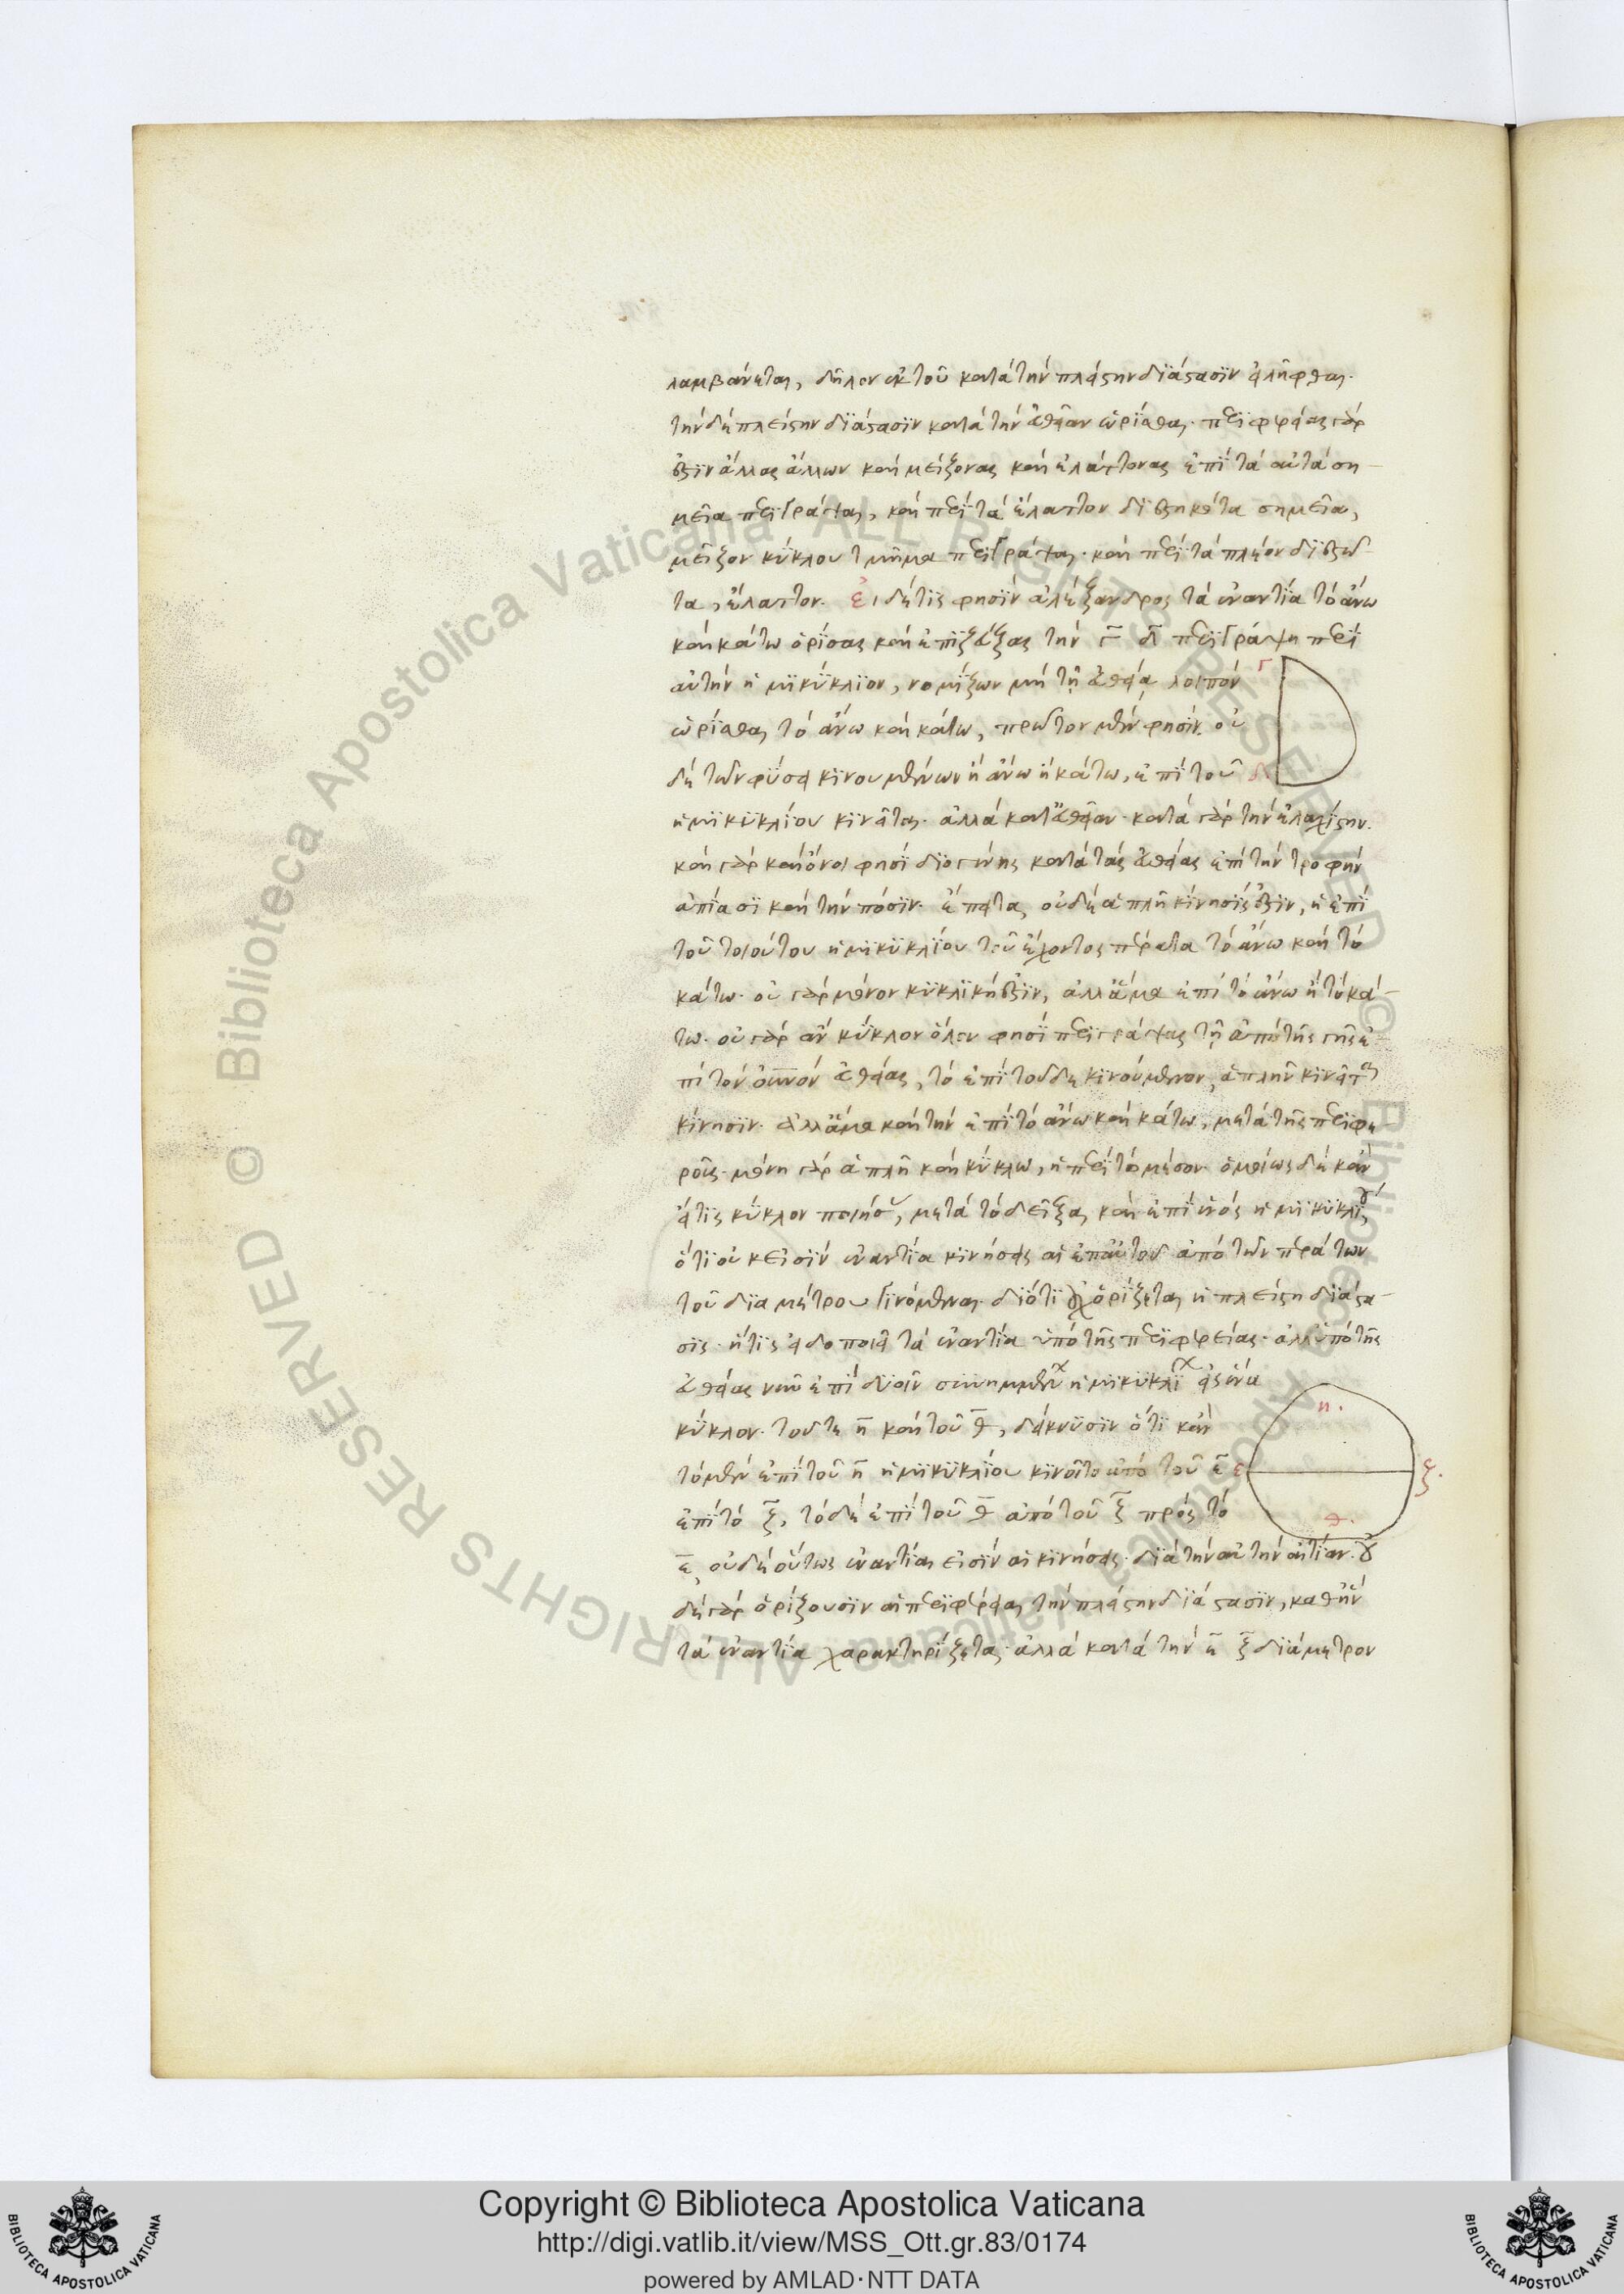 λαμβάνεται, δῆλον ἐκ τοῦ κατὰ τὴν πλείστην διάστασιν εἰλῆφθαι.
τὴν δὲ πλείστην διάστασιν κατὰ τὴν εὐθεῖαν ὡρίσθαι. περιφερείας γάρ
ἐστιν ἄλλας ἄλλων καὶ μείζονας καὶ ἐλάττονας ἐπὶ τὰ αὐτὰ ση-
μεῖα περιγράψαι, καὶ περὶ τὰ ἔλαττον διεστηκότα σημεῖα,
μεῖζον κύκλου τμῆμα περιγράψαι. καὶ περὶ τὰ πλέον διεστῶ-
τα, ἔλαττον. εἰ δέ τις φησὶν ἀλέξανδρος τὰ ἐναντία τὸ ἄνω
καὶ κάτω ὁρίσας καὶ ἐπιζεύξας τὴν γ δ περιγράψῃ περὶ
αὐτὴν ἡμικύκλιον, νομίζων μὴ τῇ εὐθείᾳ λοιπὸν
ὡρίσθαι τὸ ἄνω καὶ κάτω, πρῶτον μέν φησιν. οὐ
δὲ τῶν φύσει κινουμένων ἢ ἄνω ἢ κάτω, ἐπὶ τοῦ
ἡμικυκλίου κινεῖται. ἀλλὰ κατ' εὐθεῖαν. κατὰ γὰρ τὴν ἐλαχίστην.
καὶ γὰρ καὶ ὄνοι φησὶ διογένης κατὰ τὰς εὐθείας ἐπὶ τὴν τροφὴν
ἀπίασι καὶ τὴν πόσιν. ἔπειτα, οὐδὲ ἁπλῆ κίνησίς ἐστιν, ἡ ἐπὶ
τοῦ τοιούτου ἡμικυκλίου τοῦ ἔχοντος πέρατα τὸ ἄνω καὶ τὸ
κάτω. οὐ γὰρ μόνον κυκλική ἐστιν, ἀλλ' ἅμα ἐπὶ τὸ ἄνω ἢ τὸ κά-
τω. οὐ γὰρ ἂν κύκλον ὅλον φησὶ περιγράψας τῇ ἀπὸ τῆς γῆς ἐ-
πὶ τὸν οὐνὸν εὐθείας, τὸ ἐπὶ τοῦδε κινούμενον, ἁπλῆν κινεῖται
κίνησιν. ἀλλ' ἅμα καὶ τὴν ἐπὶ τὸ ἄνω καὶ κάτω, μετὰ τῆς περιφε
ροῦς. μόνη γὰρ ἁπλῆ καὶ κύκλω, ἡ περὶ τὸ μέσον. ὁμοίως δὲ κἂν
εἴ τις κύκλον ποιήσει, μετὰ τὸ δεῖξαι καὶ ἐπὶ ἑνὸς ἡμικυκλίου,
ὅτι οὔκ εἰσιν ἐναντία κινήσεις αἱ ἐπ' αὐτοῦ ἀπὸ τῶν περάτων
τοῦ διαμέτρου γινόμεναι. διότι οὐχ ὁρίζεται ἡ πλείστη διάστα-
σις. ἥτις εἰδοποιεῖ τὰ ἐναντία ὑπὸ τῆς περιφερείας. ἀλλ' ὑπὸ τῆς
εὐθείας νῦν ἐπὶ δυοῖν συνημμένων ἡμικυκλίων εἰς ἕνα
κύκλον. τοῦ τε η καὶ τοῦ θ, δείκνυσιν ὅτι κἂν
τὸ μὲν ἐπὶ τοῦ η ἡμικυκλίου κινοῖτο ἀπὸ τοῦ ε
ἐπὶ τὸ ζ, τὸ δὲ ἐπὶ τοῦ θ ἀπὸ τοῦ ζ πρὸς τὸ
ε, οὐδὲ οὕτως ἐναντίαι εἰσὶν αἱ κινήσεις. διὰ τὴν αὐτὴν αἰτίαν. οὐ
δὲ γὰρ ὁρίζουσιν αἱ περιφέρειαι τὴν πλείστην διάστασιν, καθ' ἣν
τὰ ἐναντία χαρακτηρίζεται. ἀλλὰ κατὰ τὴν ε ζ διάμετρον
γ
δ
η.
ε
ζ.
θ.
Copyright © Biblioteca Apostolica Vaticana
http://digi.vatlib.it/view/MSS_Ott.gr.83/0174
powered by AMLAD·NTT DATA
BIBLIOTECA APOSTOLICA VATICANA
BIBLIOTECA APOSTOLICA VATICANA
© Biblioteca Apostolica Vaticana ALL RIGHTS RESERVED © Biblioteca Apostolica Vaticana ALL RIGHTS RESERVED